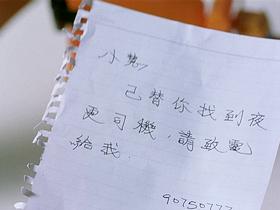 小慧
己替你找到夜
更司機,請致電
給我.
90750777